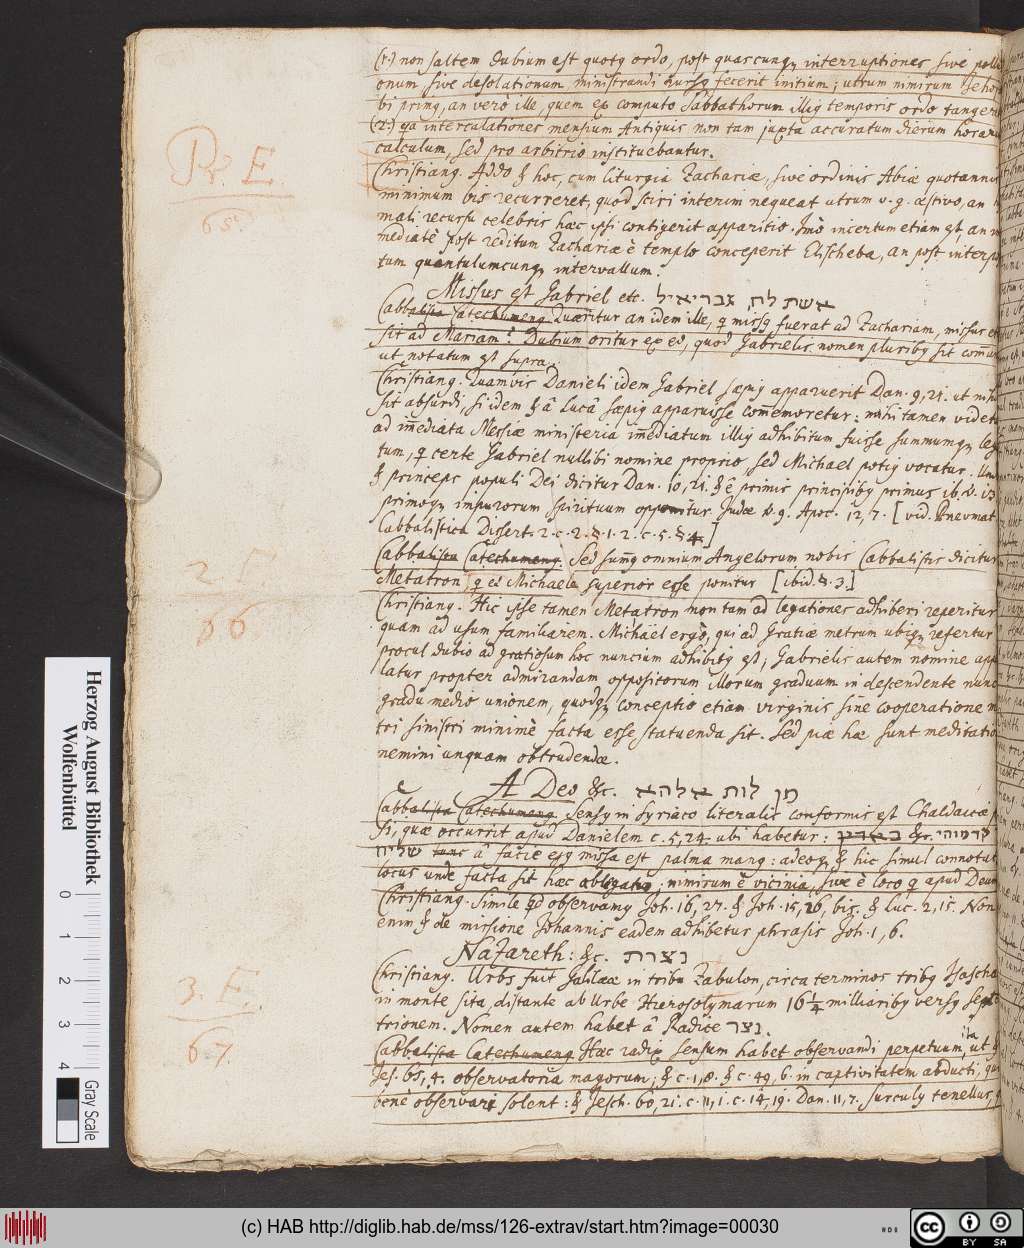 (1.) non saltem dubium est quotq ordo, post quascunq interruptiones sive pollu
onum sive desolationum ministrandi rursq fecerit initium; utrum nimirum Jehor
bi primq, an verò ille, quem ex computo Sabbathorum illiq temporis ordo tangeret
(2.) qa intercalationes mensium Antiquis non tam juxta accuratum dierum horarum
calculum, sed pro arbitrio instituebantur.
Christianq. Addo & hoc, cum liturgia Zachariæ, sive ordinis Abiæ quotannis
minimum bis recurreret, quod sciri interim nequeat utrum v. g. æstivo, an
mali recursu celebris hæc ipsi contigerit apparitio. Imò incertum etiam est, an
mediatè post reditum Zachariæ è templo conceperit Elischeba, an post interpo
tum quantulumcunq intervallum.
Missus est Gabriel etc. אשת לח גבריאיל
Cabbalista Catechumenq Quæritur an idem ille, q missq fuerat ad Zachariam, missus et
sit ad Mariam? Dubium oritur ex eo, quod Gabrielis nomen pluribq sit comun
ut notatum est supra.
Christianq. Quamvis Danieli idem Gabriel sæpiq apparuerit Dan. 9, 21. ut nihil
sit absurdi, si idem & â Lucâ sæpiq apparuisse com̄emoretur: mihi tamen videtur
ad im̄ediata Messiæ ministeria im̄ediatum illiq adhibitum fuisse summumq lega
tum, q certe Gabriel nullibi nomine proprio, sed Michael potiq vocatur. Un
& princeps populi Dei dicitur Dan. 10, 21. & ê primis principibq primus ib. v. 13
primoq impurorum spirituum opponitur Judæ v. 9. Apoc. 12, 7. [vid. Pneumat.
Cabbalistica Dissert. 2. c. 2. §. 1. 2. c. 5. § 4]
Cabbalista Catechumenq. Sed sum̄q omnium Angelorum nobis Cabbalistis dicitur
Metatron, q eo Michaele superior esse ponitur [ibid. §. 3.]
Christianq. Hic ipse tamen Metatron non tam ad legationes adhiberi reperitur
quam ad usum familiarem. Michaël ergò, qui ad Gratiæ metrum ubiq refertur
procul dubio ad gratiosum hoc nuncium adhibitq est; Gabrielis autem nomine app
latur propter admirandam oppositorum illorum graduum in descendente nunc
gradu medio unionem, quodq conceptio etiam virginis sine cooperatione m
tri sinistri minimè facta esse statuenda sit. Sed piæ hæ sunt meditatio
nemini unquam obtrudendæ.
A Deo &c. מן לות אלהא
Cabbalista Catechumenq Sensq in Syriaco literalis conformis est Chaldaicæ
si, quæ occurrit apud Danielem c. 5, 24. ubi habetur: באדין &c. קדמוהי
שליח tunc â facie ejq missa est palma manq: adeoq & hic simul connotatur
locus unde facta sit hæc oblegatio, nimirum è vicinia, sive è loco q apud Deum
Christianq. Simile qd observamq Joh. 16, 27. & Joh. 15, 26, bis. & Luc. 2, 15. Non
enim & de missione Johannis eadem adhibetur phrasis Joh. 1, 6.
Nazareth: &c. נצרת
Christianq. Urbs fuit Galilææ in tribu Zabulon, circa terminos tribq Isaschar
in monte sita, distante ab Urbe Hierosolymarum 16 1/4 milliaribq versq sept
trionem. Nomen autem habet â Radice נצר.
Cabbalista Catechumenq. Hæc radix sensum habet observandi perpetuum, ita ut
Jes. 65, 4. observatoria magorum; & c. 1, 8. & c. 49, 6. in captivitatem abducti, qui
benè observari solent: & Jesch. 60, 21. c. 11, 1. c. 14, 19. Dan. 11, 7. surculq tenellus, q
Pr. E.
65.
2. E.
66.
3. E.
67.
Herzog August Bibliothek
Wolfenbüttel
0 1 2 3 4
Gray Scale
(c) HAB http://diglib.hab.de/mss/126-extrav/start.htm?image=00030
cc BY SA